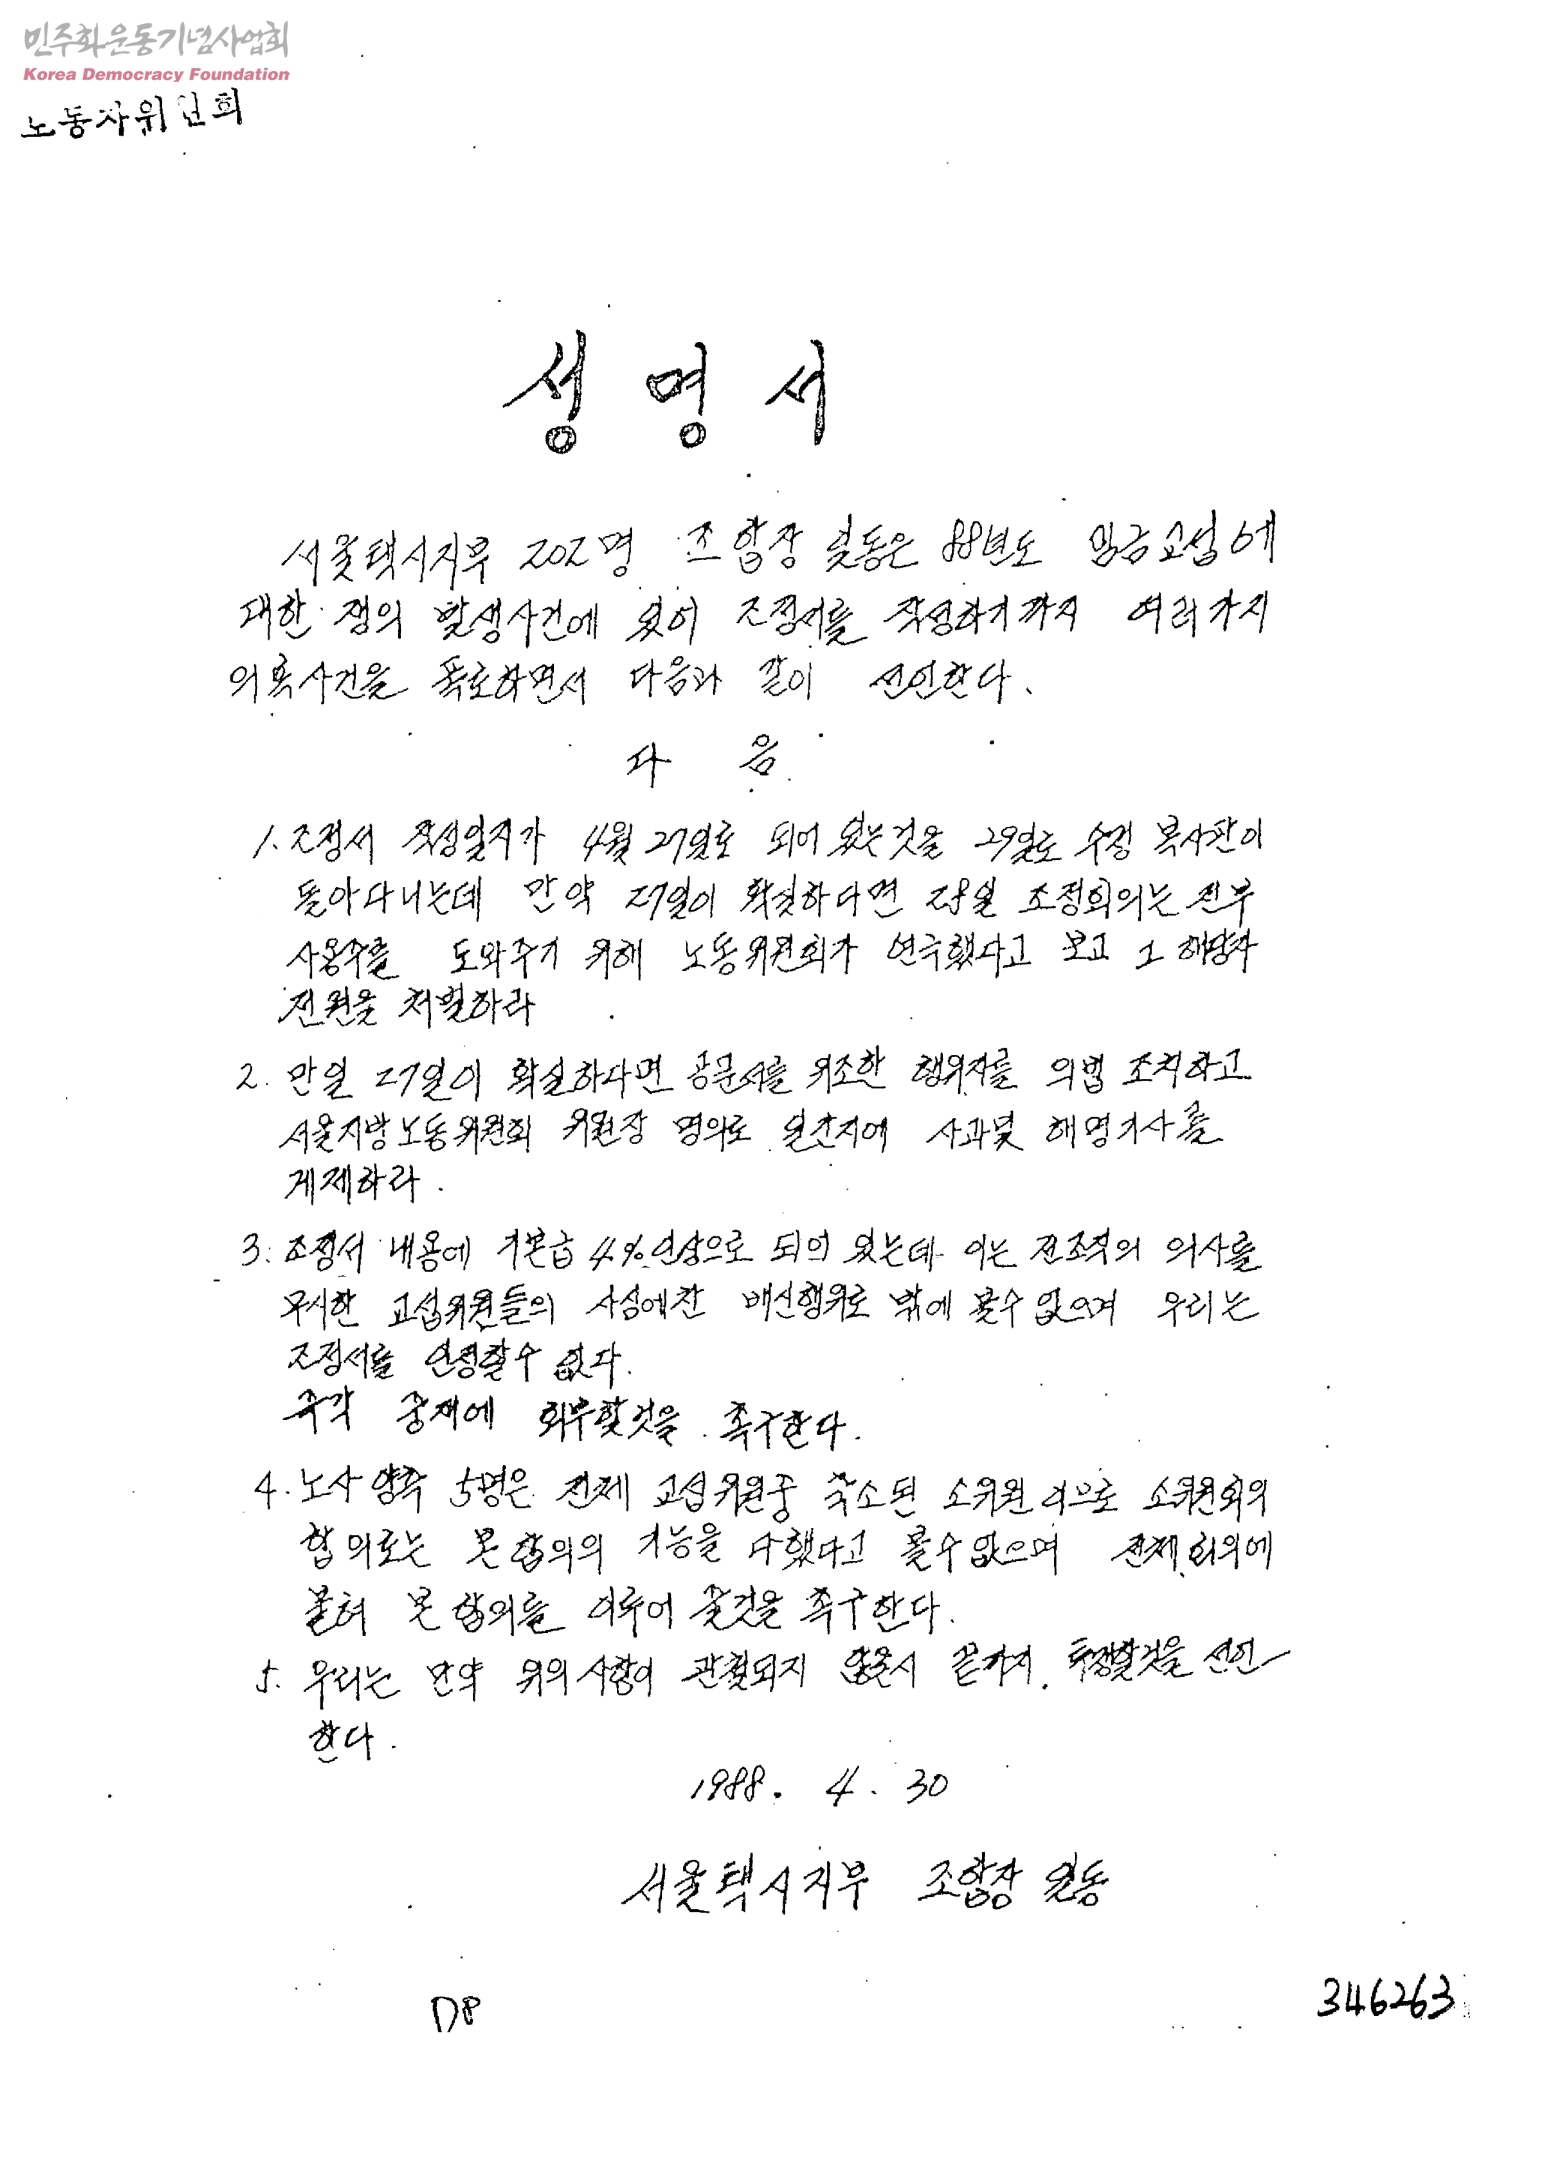 민주화운동기념사업회
Korea Democracy Foundation
노동자위원회
성명서
서울택시지부 202명 조합장 일동은 88년도 임금교섭에
대한 쟁의 발생사건에 있어 조정서를 작성하기까지 여러가지
의혹사건을 폭로하면서 다음과 같이 선언한다.
다 음
1. 조정서 작성일자가 4월 27일로 되어 있는것을 29일로 수정 복사판이
돌아다니는데 만약 27일이 확실하다면 28일 조정회의는 전부
사용주를 도와주기 위해 노동위원회가 연극했다고 보고 그 해당자
전원을 처벌하라
2. 만일 27일이 확실하다면 공문서를 위조한 행위자를 의법 조치하고
서울지방노동위원회 위원장 명의로 일간지에 사과및 해명기사를
게제하라.
3. 조정서 내용에 기본급 4% 인상으로 되어 있는데 이는 전조직의 의사를
무시한 교섭위원들의 사심에찬 배신행위로 밖에 볼수 없으며 우리는
조정서를 인정할수 없다.
즉각 중재에 회부할것을 촉구한다.
4. 노사 양측 5명은 전체 교섭위원중 축소된 소위원 이므로 소위원회의
합의로는 본 합의의 기능을 다했다고 볼수 없으며 전체 회의에
붙혀 본 합의를 이루어 줄것을 촉구한다.
5. 우리는 만약 위의 사항이 관철되지 않을시 끝까지 투쟁할것을 선언
한다.
1988. 4. 30
서울택시지부 조합장 일동
D8
346263